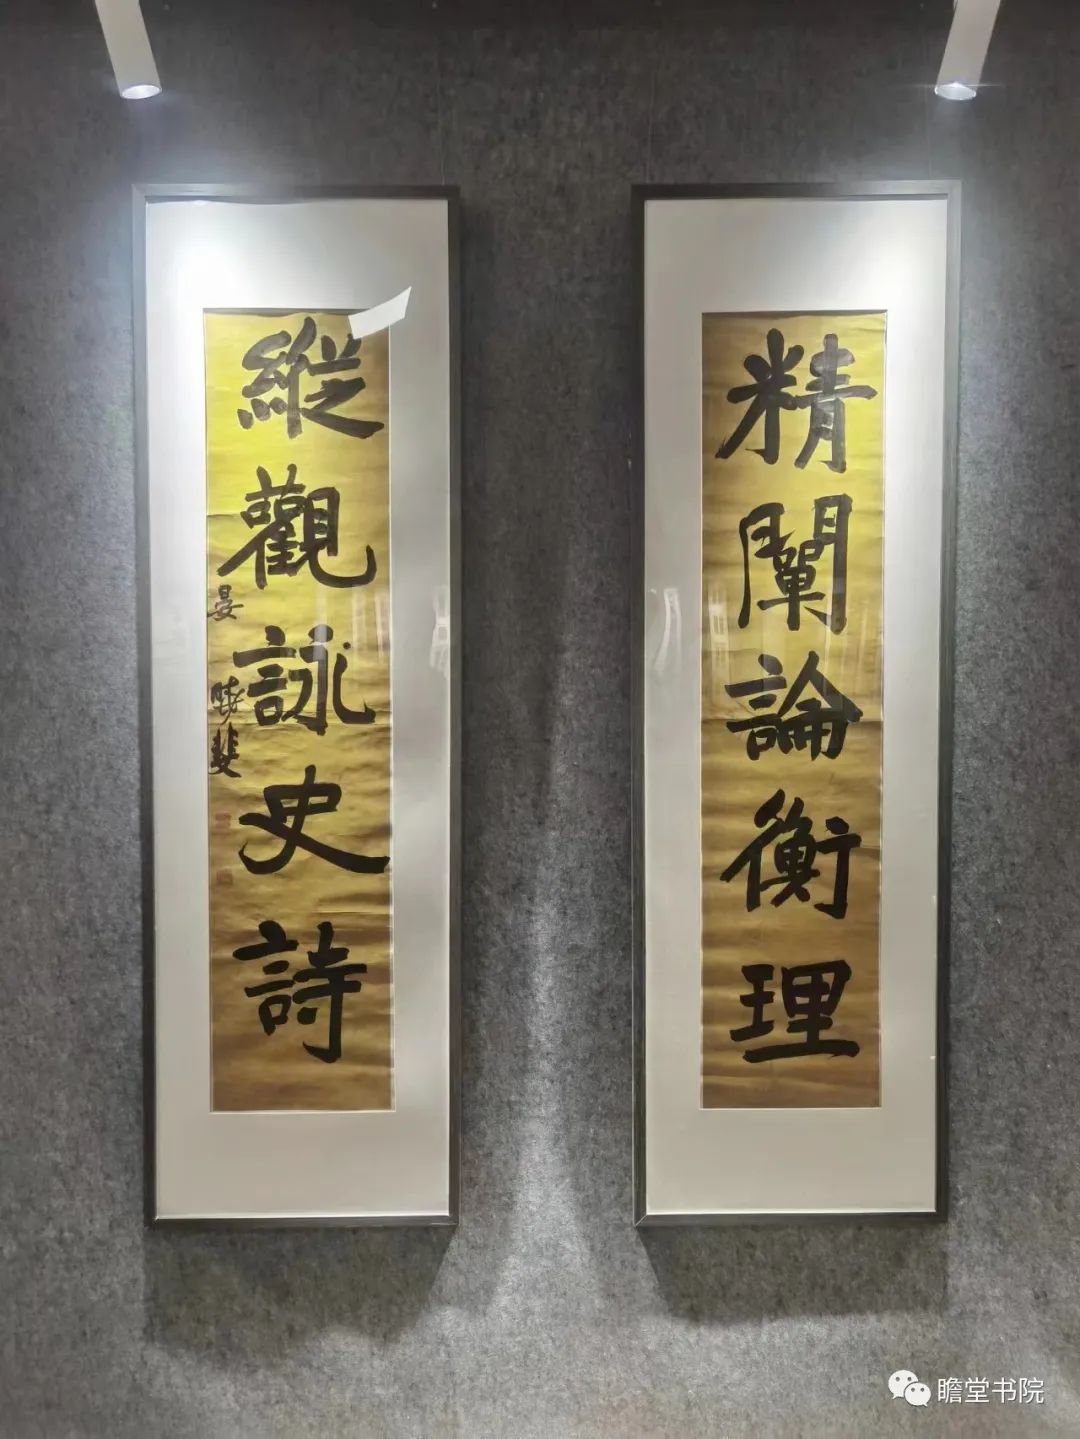 精闡論衡理
縱觀詠史詩
晏曉斐
瞻堂书院